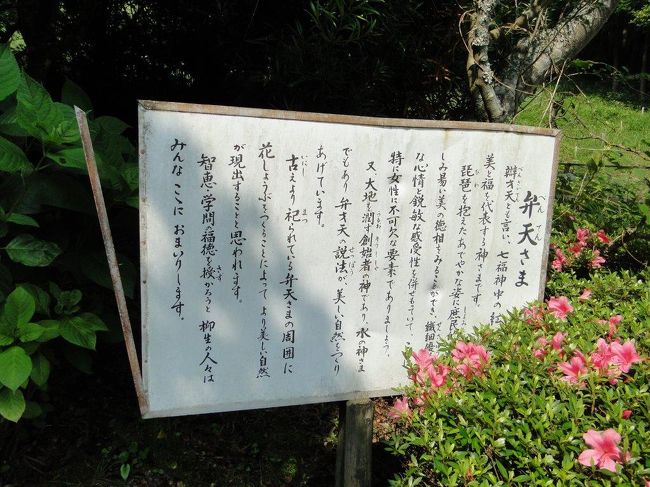 弁天さま
辯才天とも言い、七福神中の紅
美と福を代表する神さまです。
琵琶を抱えたあでやかな姿に庶民
しみ易い美の徳相をみることができ、繊細
な心情と鋭敏な感受性を併せもっていて、こ
特に女性に不可欠な要素でありましょう。
又、大地を潤す創始者の神であり、水の神さま
でもあり弁才天の説法が、美しい自然をつくり
あげています。
古えより祀られている弁天さまの周囲に
花しょうぶをつくることによって、より美しい自然
が現出することと思われます。
智恵・学問の福徳を授かろうと柳生の人々は
みんなここにおまいりします。